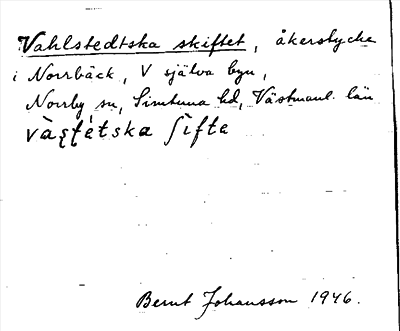 Vahlstedtska skiftet, åkerstycke
i Norrbäck, V själva byn,
Norrby sn, Simtuna hd, Västmanl. län
Bernt Johansson 1946.